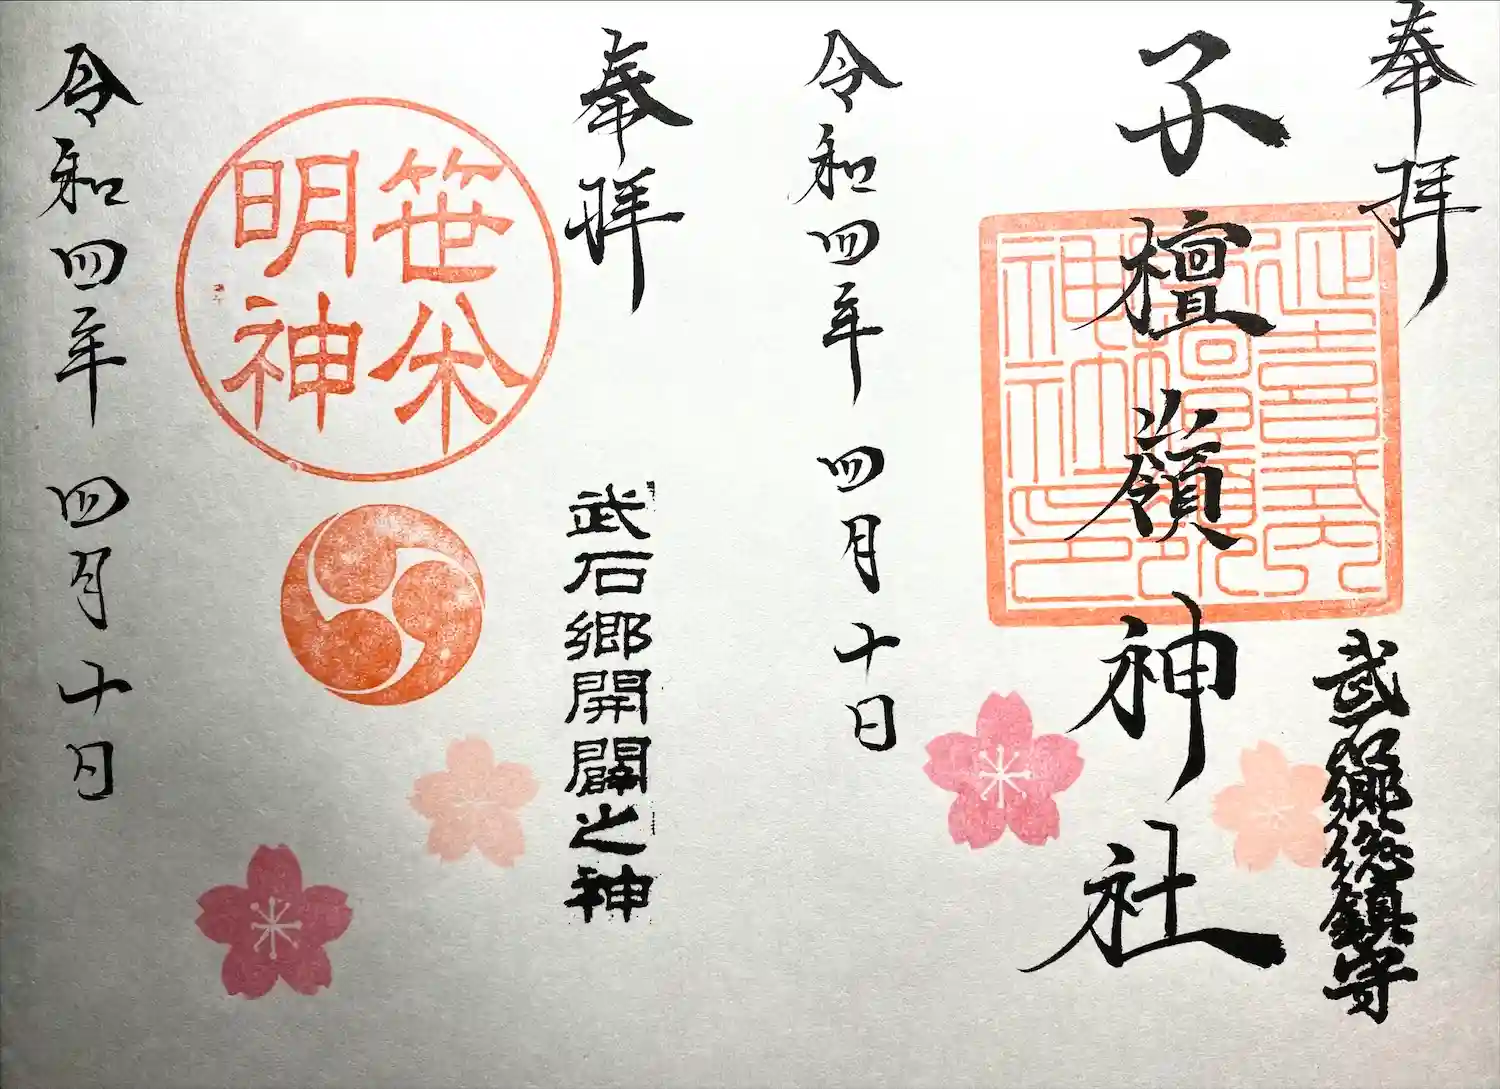 奉拝
武石郷総鎮守
延喜式内
神社印
子檀嶺神社
令和四年 四月十日
奉拝
武石郷開闢之神
笹
明神
令和四年 四月十日